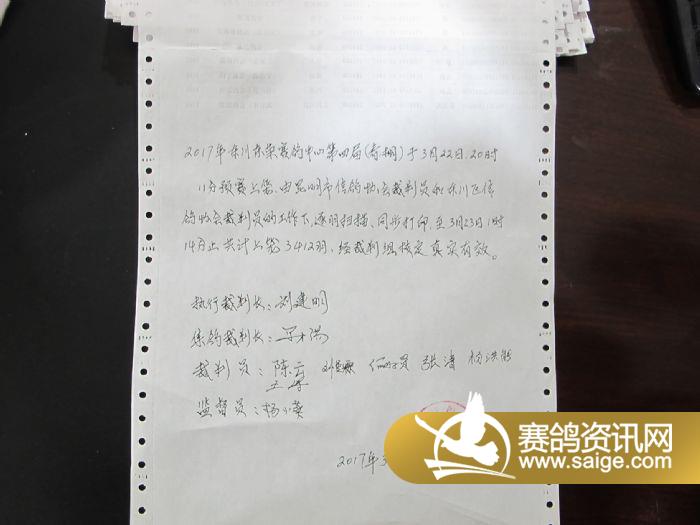 2017年东川东荣赛鸽中心第四届(春棚)于3月22日20时
11分预赛上笼,由昆明市信鸽协会裁判员和东川区信
鸽协会裁判员的工作下,逐羽扫描、同步打印,至3月23日1时
14分止共计上笼3412羽,经裁判组核定真实有效。
执行裁判长:刘建明
裁判长:
裁判员:陈云 张涛 杨洪
监督员:杨小葵
2017年3
赛鸽资讯网
www.saige.com